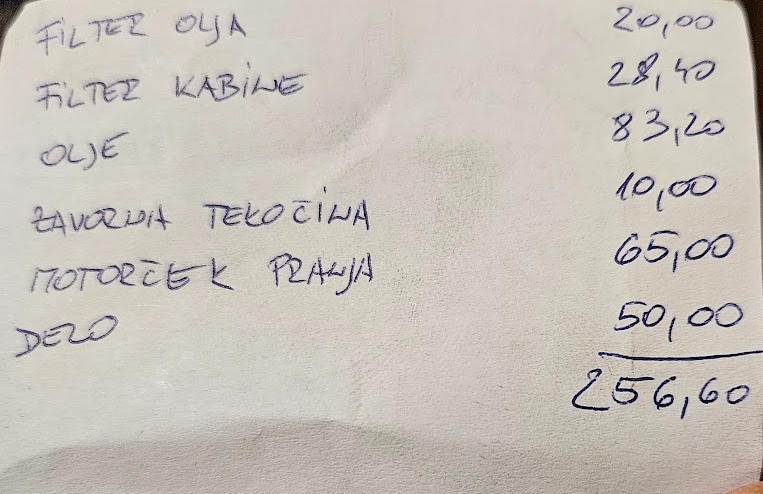 FILTER OLJA 20,00
FILTER KABINE 28,40
OLJE 83,20
ZAVORNA TEKOČINA 10,00
MOTORČEK PRANJA 65,00
DELO 50,00
256,60